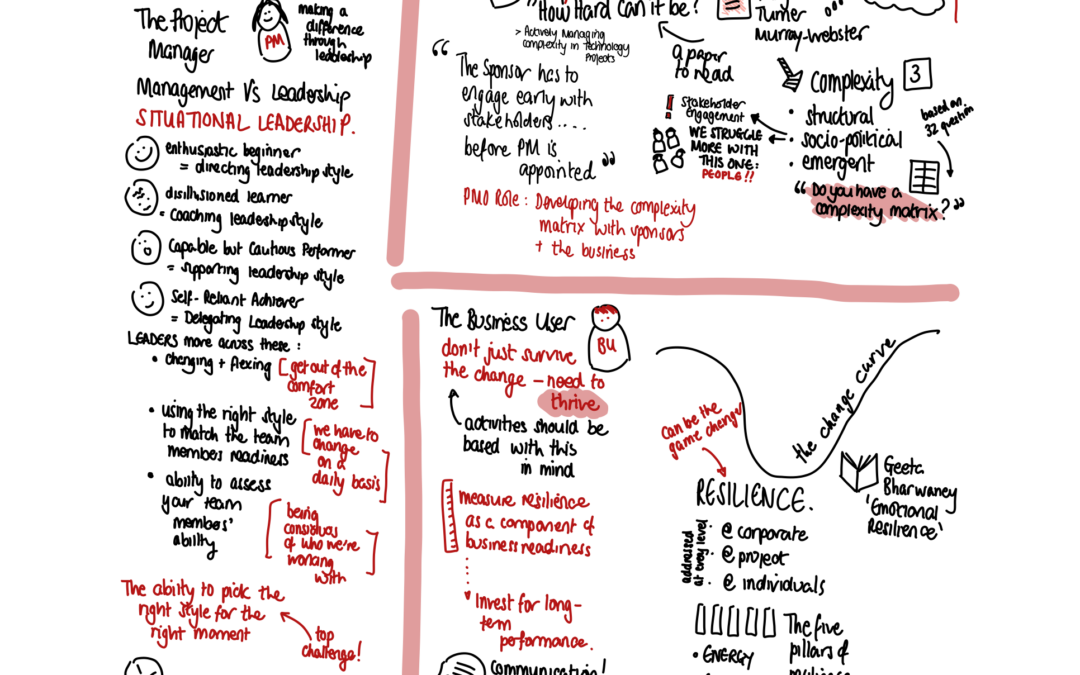 The Project
Manager
PM
making a
difference
through
leadership
Management Vs Leadership
SITUATIONAL LEADERSHIP.
enthusiastic beginner
= directing leadership style
disillusioned learner
= coaching leadership style
Capable but Cautious Performer
= supporting leadership style
Self-Reliant Achiever
= Delegating Leadership style
LEADERS move across these:
• changing + flexing
[get out of the
comfort
zone]
• using the right style
to match the team
members readiness
[we have to
change
on a
daily basis]
• ability to assess
your team
members'
ability
[being
conscious
of who we're
working
with]
The ability to pick the
right style for the
right moment
top
challenge!
"How Hard Can it be?"
> Actively Managing
complexity in Technology
Projects
a paper
to read
Turner
Murray-Webster
"The Sponsor has to
engage early with
stakeholders....
before PM is
appointed"
PMO Role: Developing the complexity
matrix with sponsors
+ the business
! Stakeholder
Engagement
WE STRUGGLE
MORE WITH
THIS ONE:
PEOPLE!!
Complexity 3
• structural
• socio-political
• emergent
based on
32 question
"Do you have a
complexity matrix?"
The Business User
BU
don't just survive
the change - need to
thrive
activities should be
based with this
in mind
measure resilience
as a component of
business readiness
Invest for long-
term
performance.
Communication!
the change curve
can be the
game changer
RESILIENCE.
addressed
at every level
• @ corporate
• @ project
• @ individuals
Geeta
Bharwaney
'Emotional
Resilience'
The five
pillars of
• ENERGY